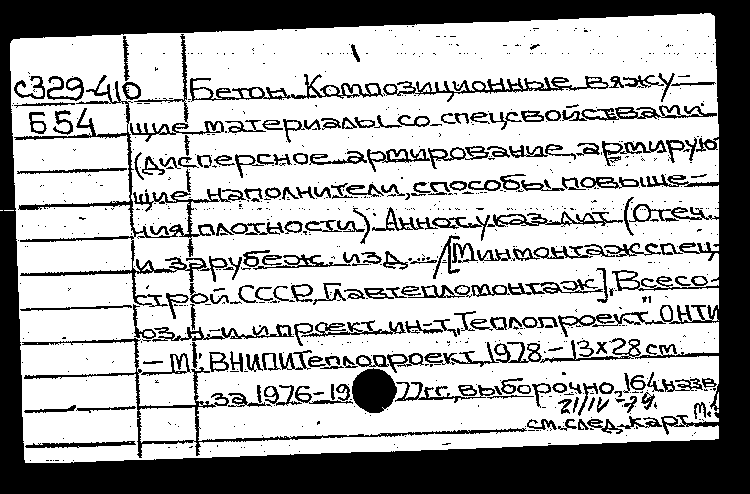 с329-410 Бетон. Композиционные вяжу-
Б54 щие материалы со спецсвойствами
(дисперсное армирование, армирую
щие наполнители, способы повыше-
ния плотности). Аннот. указ. лит. (Отеч.
и зарубеж. изд... /[Минмонтажспец-
строй СССР, Главтепломонтаж], Всесо-
юз. н.-и. и проект. ин-т „Теплопроект". ОНТИ
– М.: ВНИПИТеплопроект, 1978. – 13×28 см.
...за 1976-19 77гг., выборочно, 164 назв
21/IV -79г.
см. след. карт.